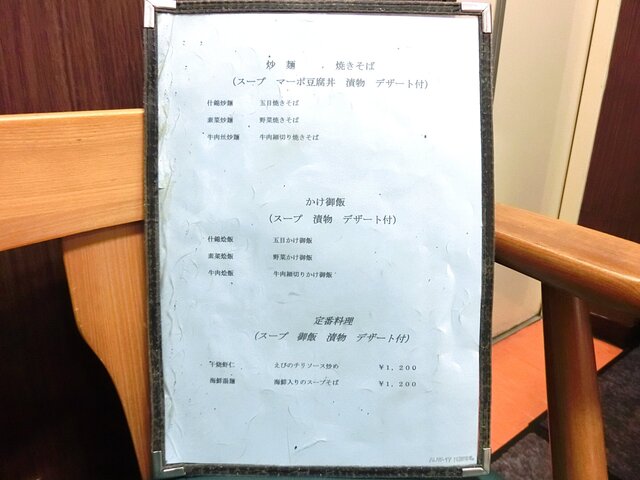 炒　麺　　焼きそば
（スープ　マーボ豆腐丼　漬物　デザート付）
什錦炒麺　五目焼きそば
素菜炒麺　野菜焼きそば
牛肉丝炒麺　牛肉細切り焼きそば
かけ御飯
（スープ　漬物　デザート付）
什錦烩飯　五目かけ御飯
素菜烩飯　野菜かけ御飯
牛肉烩飯　牛肉細切りかけ御飯
定番料理
（スープ　御飯　漬物　デザート付）
干烧虾仁　えびのチリソース炒め　￥1，200
海鮮湯麺　海鮮入りのスープそば　￥1，200